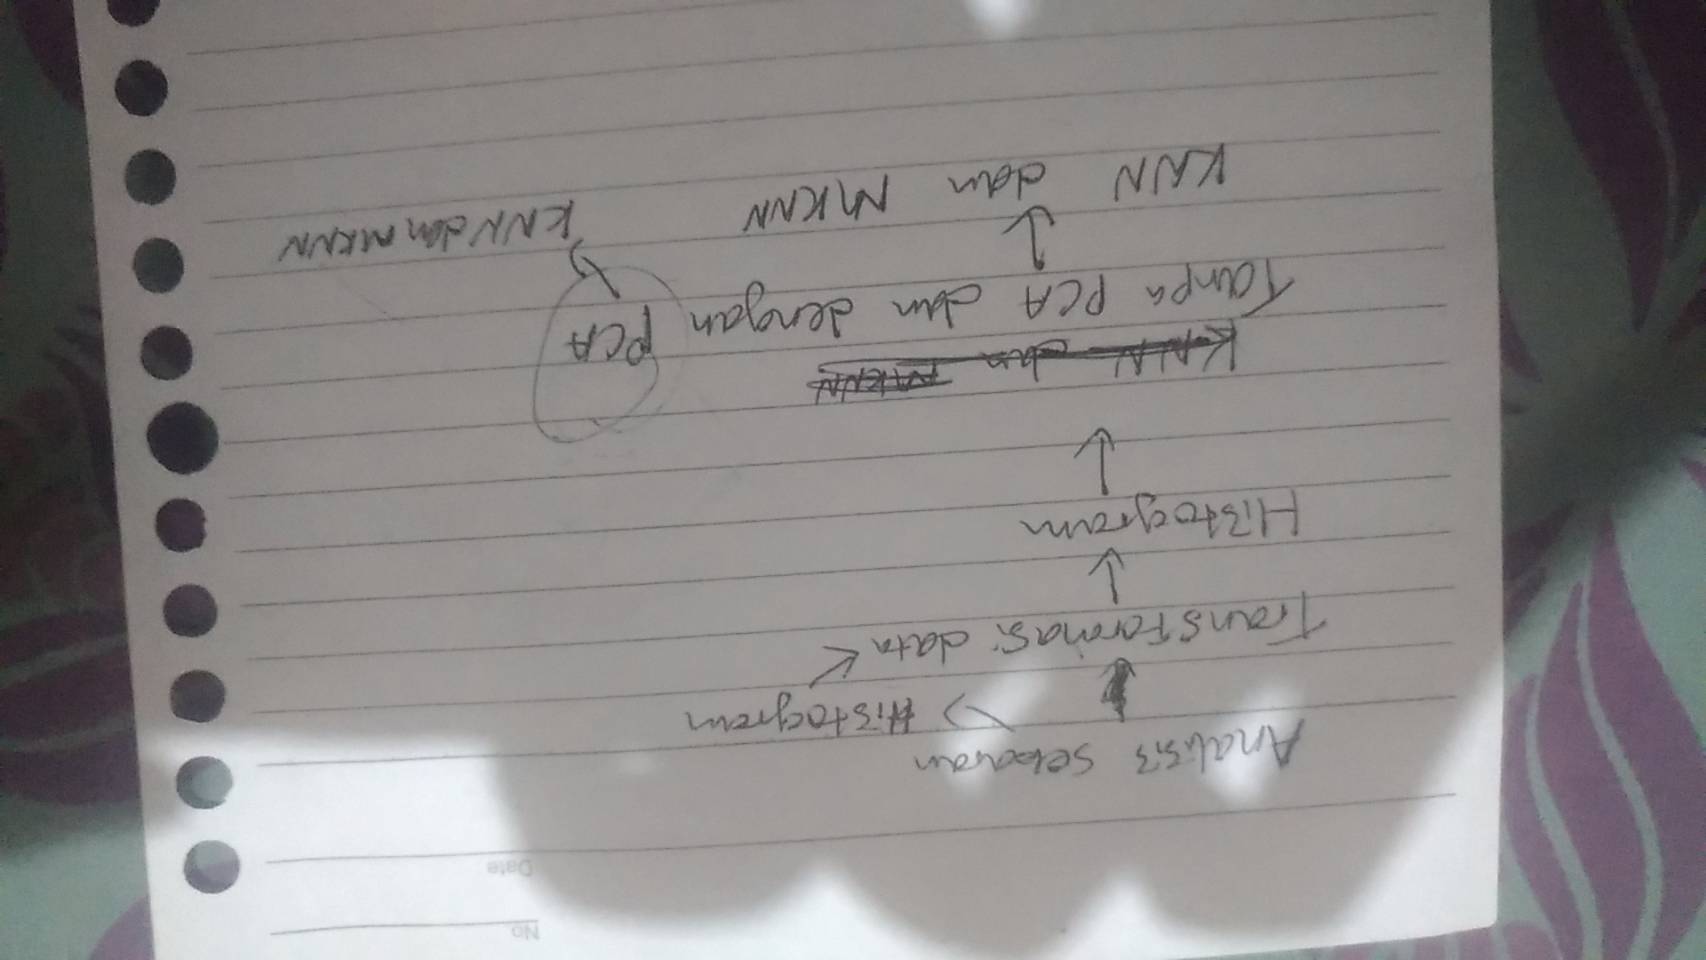 No
Date
Analisis sebaran
→ Histogram
Transformasi data ←
↓
Histogram
↓
KNN dan MKNN
Tanpa PCA dan dengan PCA
KNN dan MKNN
KNN dan MKNN